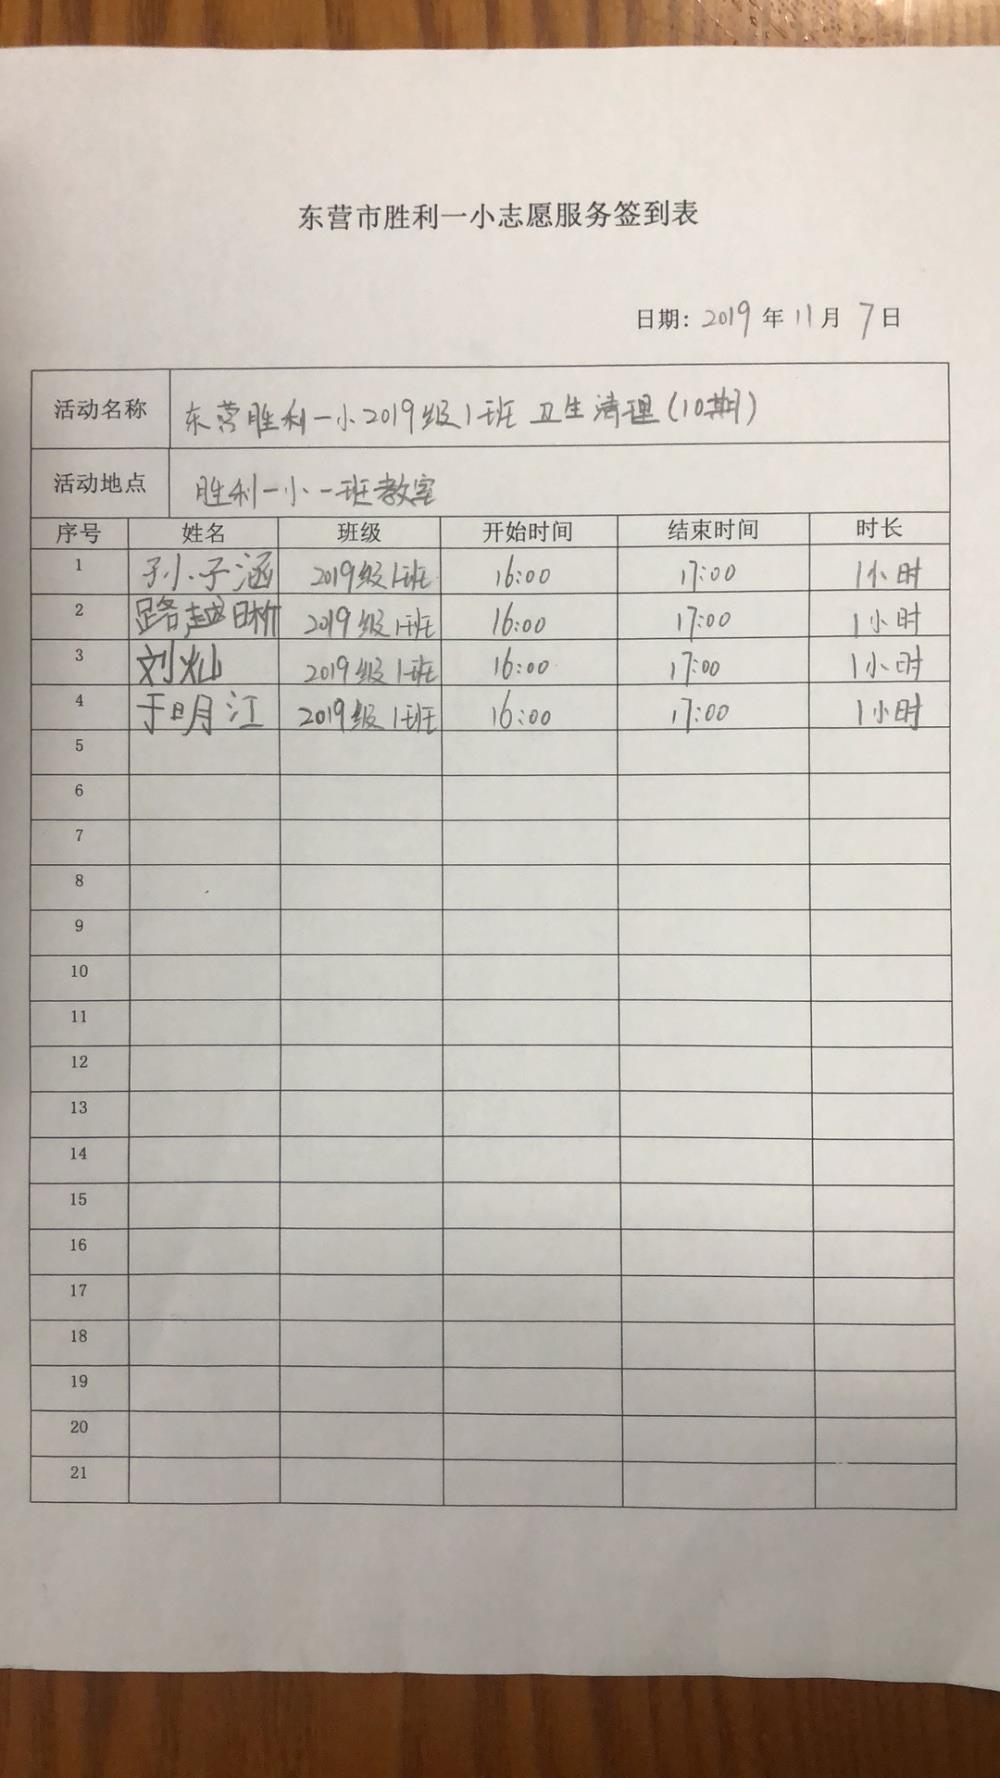 东营市胜利一小志愿服务签到表
日期: 2019 年 11 月 7 日
活动名称 东营胜利一小2019级1班 卫生清理(10期)
活动地点 胜利一小一班教室
序号 姓名 班级 开始时间 结束时间 时长
1 孙子涵 2019级1班 16:00 17:00 1小时
2 路越 2019级1班 16:00 17:00 1小时
3 刘灿 2019级1班 16:00 17:00 1小时
4 于明江 2019级1班 16:00 17:00 1小时
5
6
7
8
9
10
11
12
13
14
15
16
17
18
19
20
21